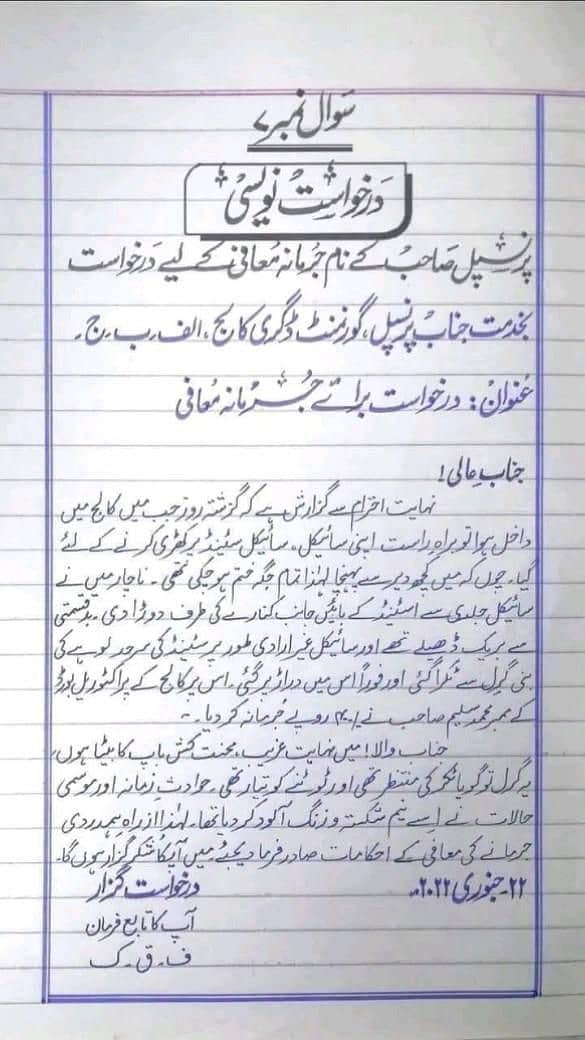 سَوال نمبر ۷
دَرخواست نویسی
پرنسپل صَاحب کے نام جُرمانہ مُعافی کے لیے دَرخواست
بخدمت جناب پرنسپل، گورنمنٹ ڈگری کالج، الف۔ب۔ج۔
عُنوان: درخواست برائے جُرمانہ مُعافی
جنابِ عالی!
نہایت احترام سے گزارش ہے کہ گزشتہ روز جب میں کالج میں
داخل ہوا تو براہِ راست اپنی سائیکل، سائیکل سٹینڈ پر کھڑی کرنے کے لئے
گیا۔ چوں کہ میں کچھ دیر سے پہنچا لہٰذا تمام جگہ ختم ہو چکی تھی۔ ناچار میں نے
سائیکل جلدی سے اسٹینڈ کے بائیں جانب کنارے کی طرف دوڑا دی۔ بدقسمتی
سے بریک ڈھیلے تھے اور سائیکل غیر ارادی طور پر سٹینڈ کی سرحد لوہے کی
بنی گرل سے ٹکرا گئی اور فوراً اس میں دراڑ پڑ گئی۔ اس پر کالج کے پراکٹوریل بورڈ
کے ممبر محمد سلیم صاحب نے روپے جُرمانہ کر دیا۔
جناب والا! میں نہایت غریب، محنت کش باپ کا بیٹا ہوں،
یہ گرل تو گویا ٹکر کی منتظر تھی اور ٹوٹنے کو تیار تھی۔ حوادثِ زمانہ اور موسمی
حالات نے اِسے نیم شکستہ و زنگ آلود کر دیا تھا۔ لہٰذا ازراہِ ہمدردی
جرمانے کی معافی کے احکامات صادر فرما دیجئے میں آپکا شکر گزار ہوں گا۔
۲۲۔جنوری ۲۰۲۲ء درخواست گزار
آپ کا تابع فرمان
ف۔ق۔ک